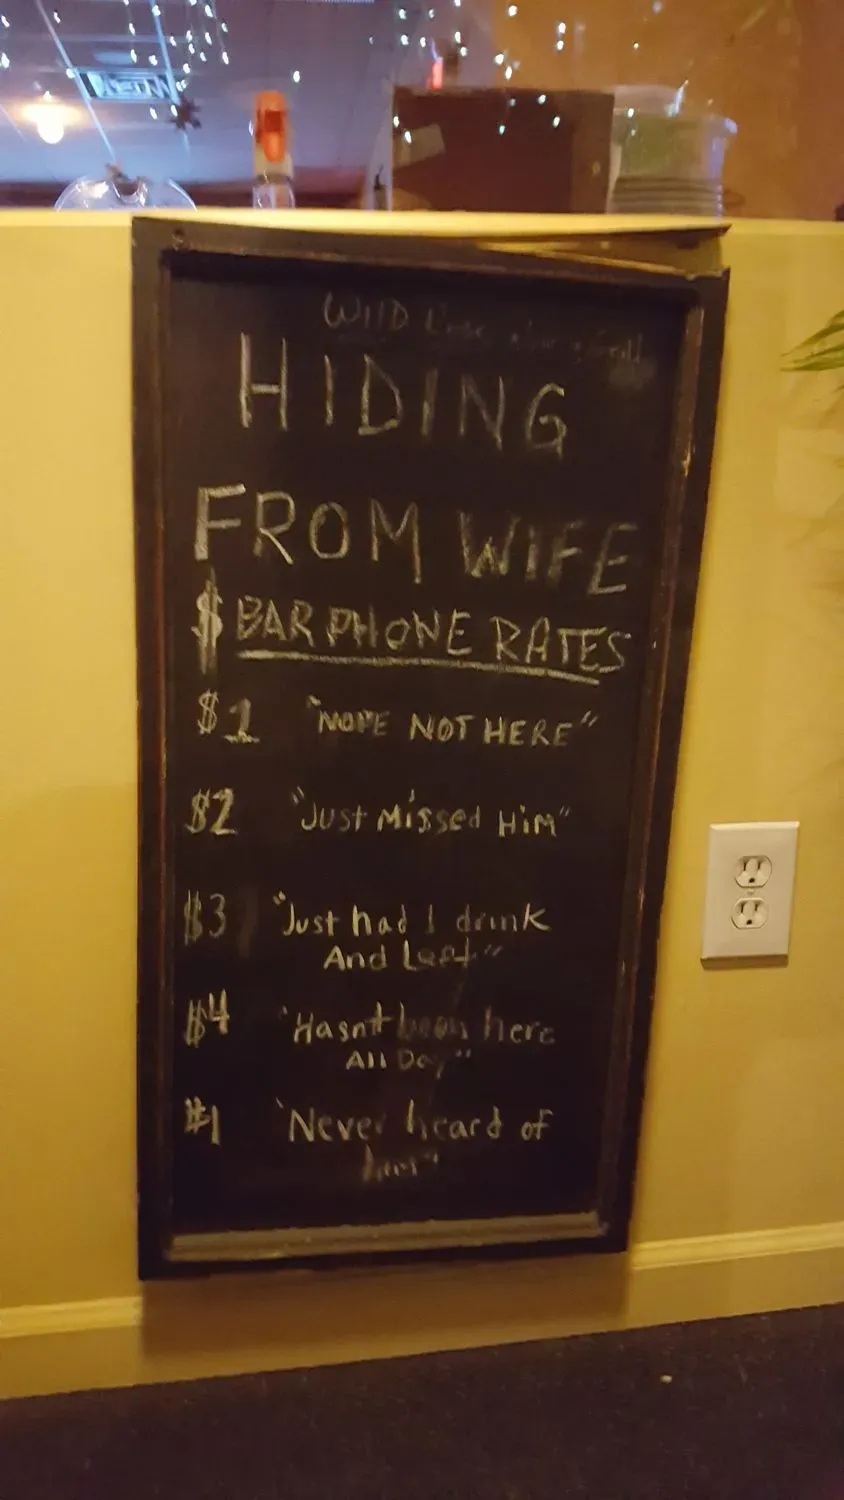 WIlD
HIDING
FROM WIFE
$ BAR PHONE RATES
$1 "NOPE NOT HERE"
$2 "Just Missed HiM"
$3 "Just had 1 drink
And Left"
$4 "Hasn't been here
All Day"
$1 "Never heard of
him"